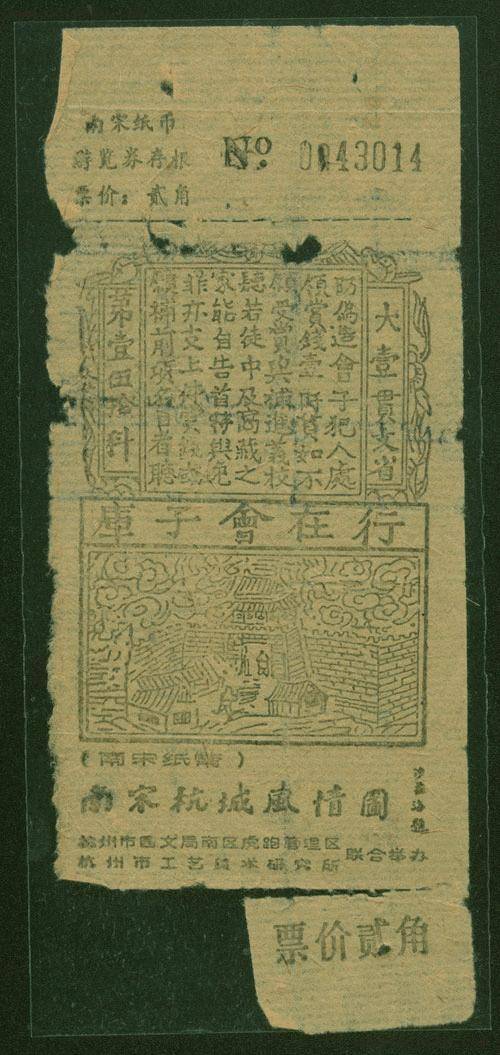 南宋纸币
游览券存根
票价：贰角
№ 0043014
大壹貫文省
偽造會子犯人處
賞錢壹阡貫如不
願受賞與補進義校
尉若徒中及窩藏之
家能自告首特與免
罪亦支上件賞錢或
願補前項名目者聽
第壹伍拾料
行在會子庫
(南宋纸币)
南宋杭城風情圖
沙孟海題
杭州市园文局南区虎跑管理区
杭州市工艺美术研究所
联合举办
票价贰角